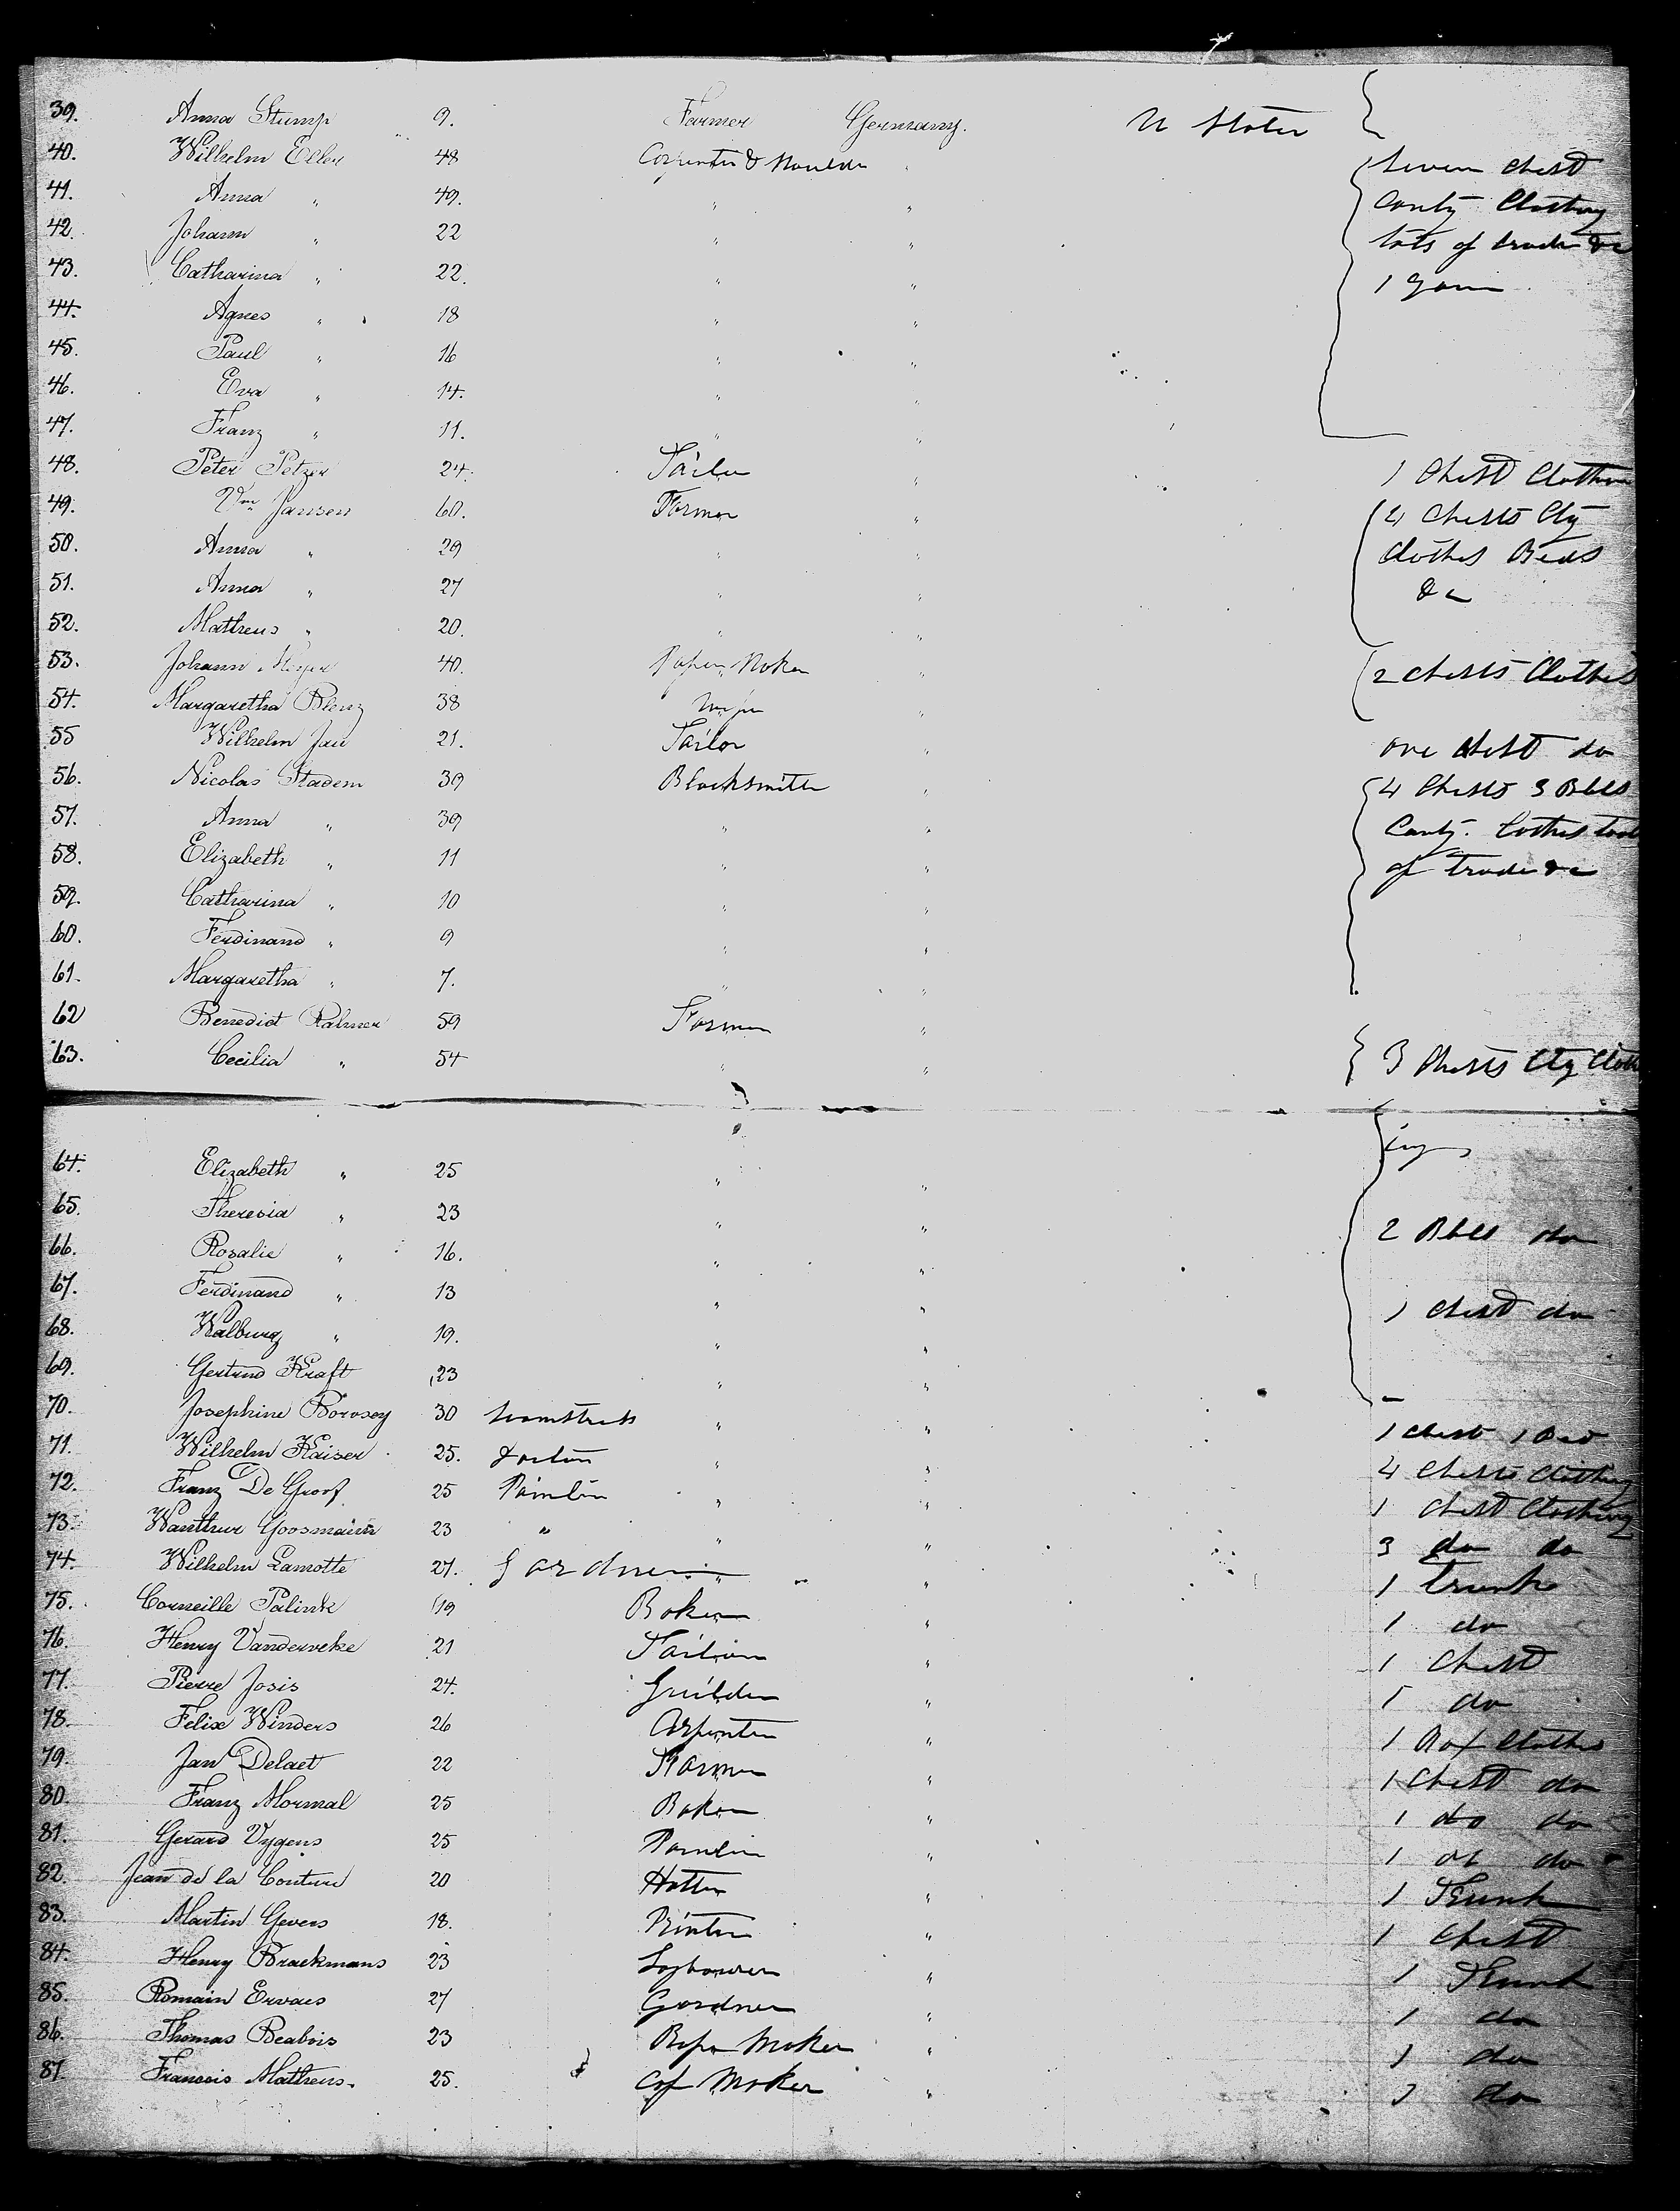 39. Anna Stump 9. Farmer Germany. U States
40. Wilhelm Eller 48 Carpenter & Seven Chest
41. Anna " 49. " " Conty Clothing
42. Johann " 22 " " tols of trade &c
43. Catharina " 22. " " 1
44. Agnes " 18 " "
45. Paul " 16 " "
46. Eva " 14. " "
47. Franz " 11. " "
48. Peter Petzer 24. Tailor " 1 Chest Clothing
49. Wm Jansen 60. Farmer " 4 Chests Ctg
50. Anna " 29 " " Clothes Beds
51. Anna " 27 " " &c
52. Matheus " 20. " "
53. Johann Meyer 40. Paper Maker 2 Chests Clothes
54. Margaretha Blenz 38 "
55 Wilhelm Jau 21. Tailor " one Chest do
56. Nicolas Stadem 39 Blacksmith " 4 Chests 3 Bbls
57. Anna " 39 " " Conty. Cothes tools
58. Elizabeth " 11 " " of trade &c
59. Catharina " 10 " "
60. Ferdinand " 9 " "
61. Margaretha " 7. " "
62 Benedict Palmer 59 Farmer "
63. Cecilia " 54 " " 3 Chests Ctg Cloth
64. Elizabeth " 25 " " ing
65. Theresia " 23 " "
66. Rosalie " 16. " " 2 Bbls do
67. Ferdinand " 13 " "
68. Walburg " 19. " " 1 Chest do
69. Gertrud Kraft 23 " "
70. Josephine Borosey 30 Seamstress " " 1 Chest 1 Bed
71. Wilhelm Kaiser 25. " " 4 Chests Clothing
72. Franz De Groof 25 Painter " " 1 Chest Clothing
73. Wanthur Goosmann 23 " " " 3 do do
74. Wilhelm Lamotte 27. Gardner " " 1 trunk
75. Corneille Palink 19 Baker " 1 do
76. Henry Vanderveke 21 Tailor " 1 Chest
77. Pierre Josis 24. " 1 do
78. Felix Winders 26 Carpenter " 1 Box Clothes
79. Jan Delaet 22 Farmer " 1 Chest do
80. Franz Mormal 25 Baker " 1 do do
81. Gerard Vygens 25 Painter " 1 do do
82. Jean de la Couture 20 Hatter " 1 Trunk
83. Martin Gevers 18. Printer " 1 Chest
84. Henry Brackmans 23 " 1 Trunk
85. Romain Ervaes 27 Gardner " 1 do
86. Thomas Beabois 23 Maker " 1 do
87. Francois Matheus. 25. Maker " 1 do